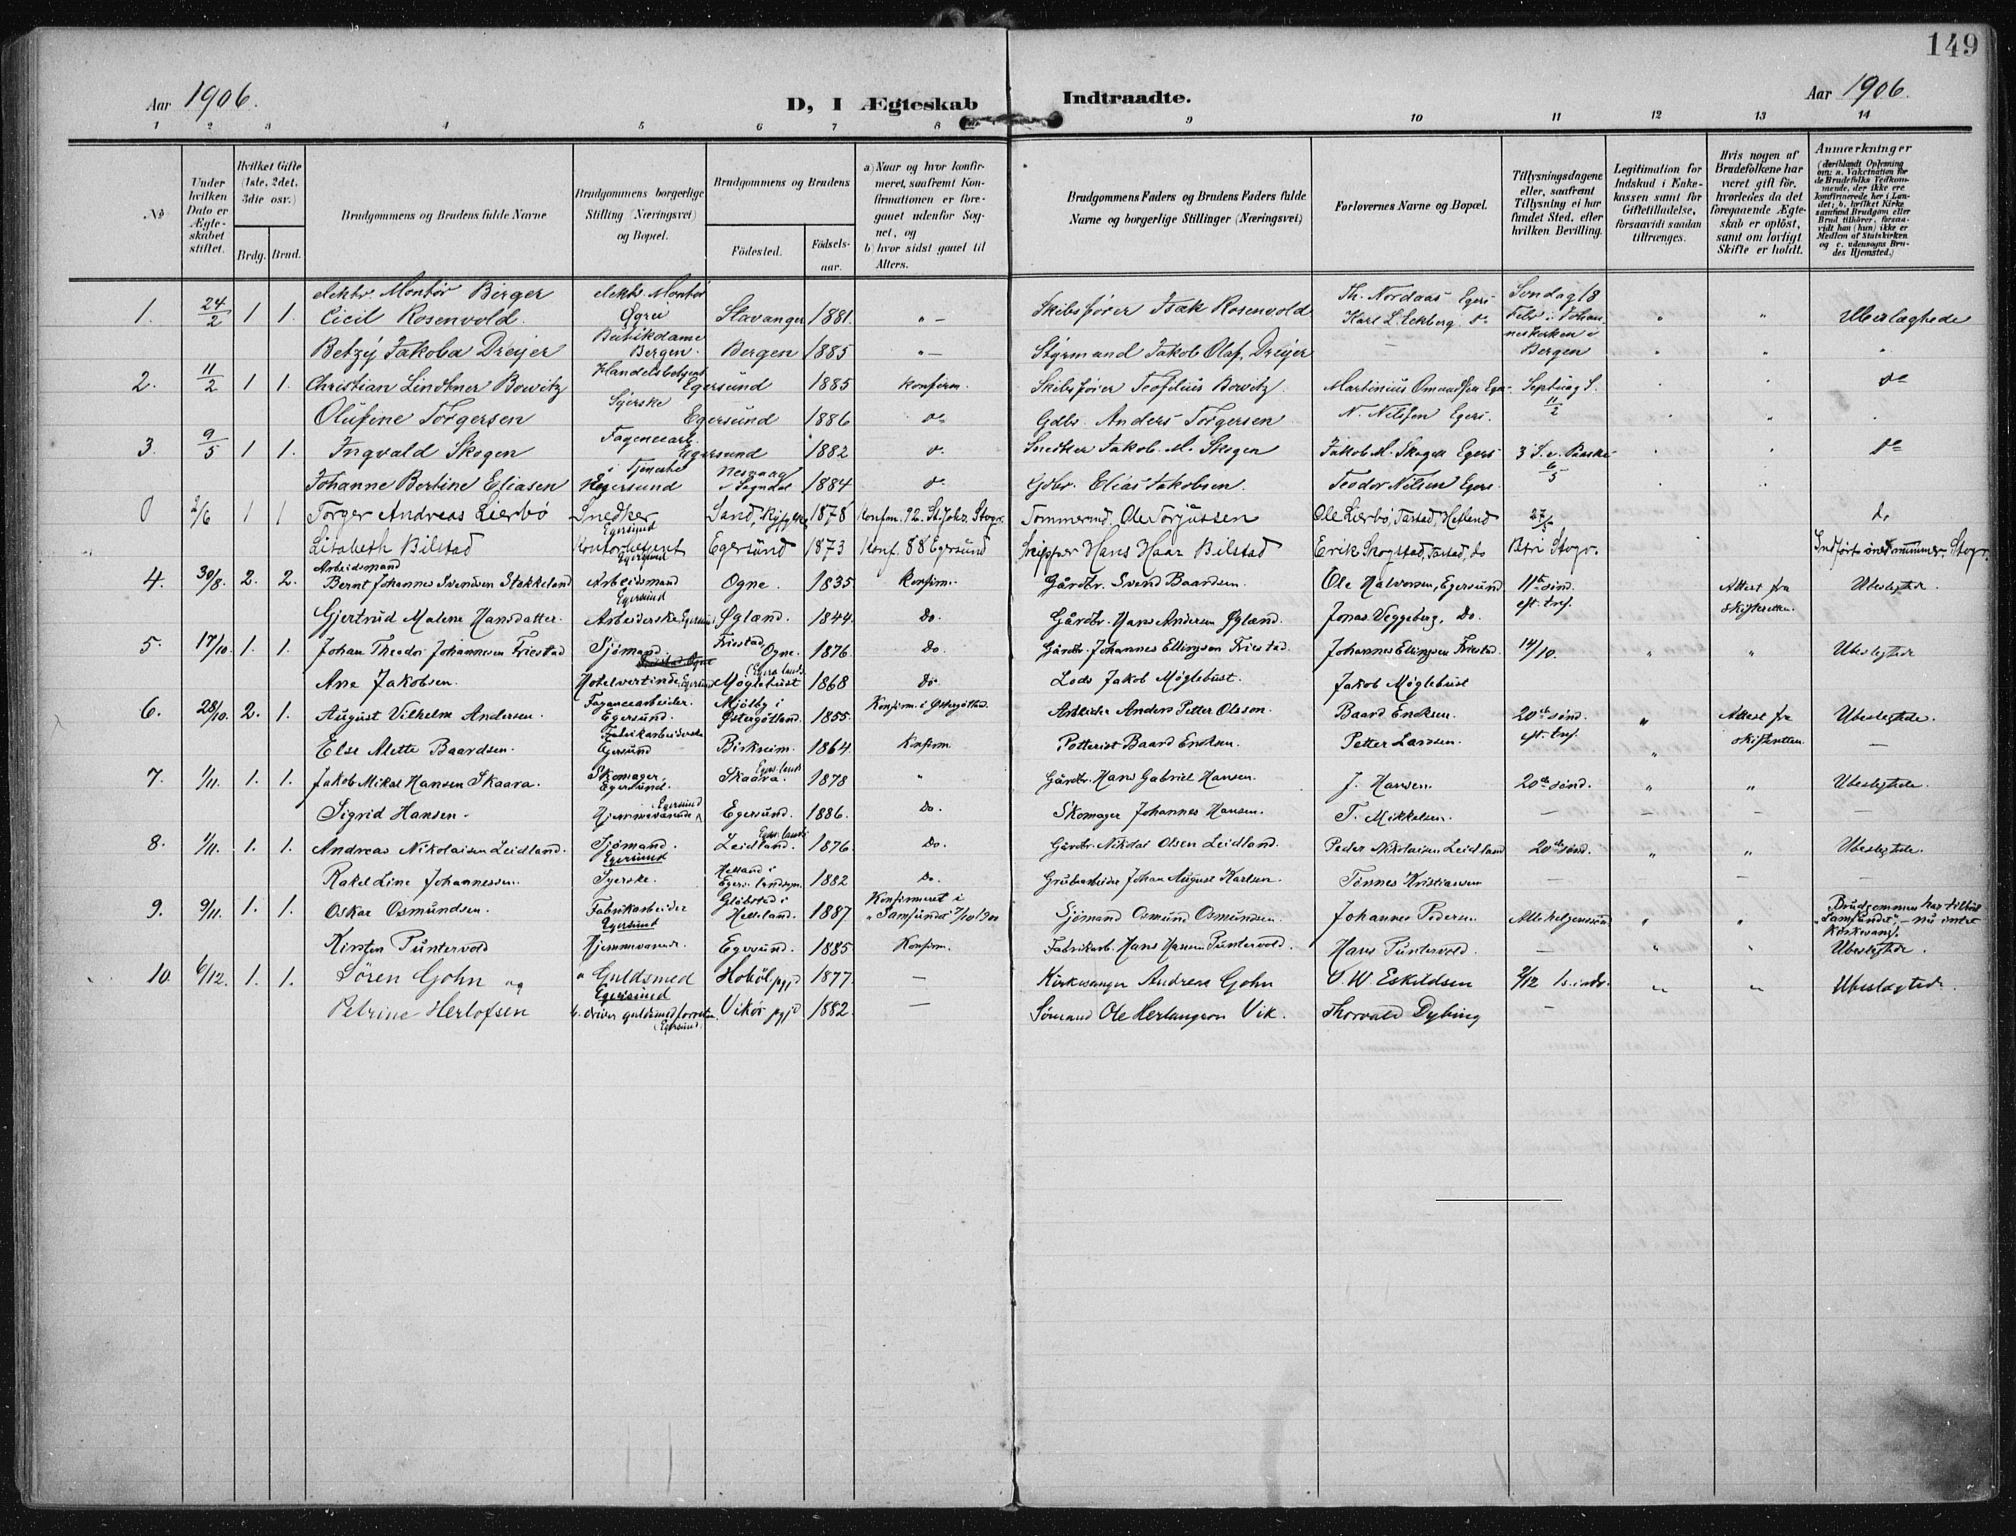 149
Aar 1906.
D, I Ægteskab Indtraadte.
Aar 1906.
1 2 3 4 5 6 7 8 9 10 11 12 13 14
No
Under hvilken Dato er Ægteskabet stiftet.
Hvilket Gifte (1ste, 2det, 3die osv.)
Brdg. Brud.
Brudgommens og Brudens fulde Navne
Brudgommens borgerlige Stilling (Næringsvei) og Bopæl.
Brudgommens og Brudens
Fødested. Fødselsaar.
a) Naar og hvor konfirmeret, saafremt Konfirmationen er foregaaet udenfor Sognet, og
b) hvor sidst gaaet til Alters.
Brudgommens Faders og Brudens Faders fulde Navne og borgerlige Stillinger (Næringsvei)
Forlovernes Navne og Bopæl.
Tillysningsdagene eller, saafremt Tillysning ei har fundet Sted, efter hvilken Bevilling.
Legitimation for Indskud i Enkekassen samt for Giftetilladelse, forsaavidt saadan tiltrænges.
Hvis nogen af Brudefolkene har været gift før, hvorledes da det foregaaende Ægteskab er opløst, samt om lovligt Skifte er holdt.
Anmærkninger (deriblandt Oplysning om: a. Vakcination for de Brudefolks Vedkommende, der ikke ere konfirmerede her i Landet; b. hvilket Kirkesamfund Brudgom eller Brud tilhører, forsaavidt han (hun) ikke er Medlem af Statskirken og c. udensogns Brudes Hjemsted.)
1. 24/2 1 1. elektr. Montør Birger Cicil Rosenvold. elektr. Montør Ogne Stavanger 1881. "— Skibsfører Isak Rosenvold Th. Nordaas Egers Karl L. Eckberg do Søndag 18 Febr. i Johanneskirken i Bergen " " Ubeslægtede
Betzy Jakoba Dreyer Butikdame Bergen. Bergen 1885 "— Styrmand Jakob Olaf Dreyer — " " "
2. 11/2 1 1. Christian Lindtner Bowitz Handelsbetjent Egersund 1885 Konfirm. Skibsfører Teofilius Bowitz. Martinius Omundsen Eger. Septuag S. 11/2 do
Olufine Torgersen Syerske Egersund 1886 do Gdbr. Anders Torgersen N. Nilssen Egers.
3. 9/5 1 1. Ingvald Skogen Fagencearb. Egersund 1882 do Snedker Jakob M. Skogen Jakob M. Skogen Egers 3 S. e. Paaske 6/5 do
Johanne Bertine Eliasen i Tjeneste Egersund Nesgaag i Sogndal 1884 do Gdbr. Elias Jakobsen. Teodor Nilsen Egers.
0 2/6 1 1 Torger Andreas Lierbø Snedker Egersund Sand, Ryfylke 1878 Konfm. 92. St. Johs. Stvgr. Tømmermd. Ole Torjussen Ole Lierbø, Tastad, Hetland 27/5 do
Lisabeth Bilstad Kontorbetjent Egersund Egersund 1873 Konf. 88 Egersund Skipper Hans Haar Bilstad Erik Skogstad, Tastad, do Petri Stvgr. Indført under nummer, Stvgr.
4. 30/8. 2. 2. Arbeidsmand Bernt Johannes Svendsen Stokkeland Arbeidsmand Egersund Ogne. 1835 Konfirm. Gårdbr. Svend Baardsen. Ole Halvorsen, Egersund 11te sønd. eft. tref. Attest fra skifteretten. Ubeslegtede.
Gjertrud Malene Hansdatter. Arbeiderske Egersund Øgland. 1844. Do. Gårdbr. Hans Andersen Øgland. Jonas Veggeberg, Do.
5. 17/10. 1. 1. Johan Theodor Johannesen Friestad Sjømand Friestad Ogne. 1876 Do Gårdbr. Johannes Ellingsen Friestad. Johannes Ellingsen Friestad. 14/10. " " Ubeslegtede
Ane Jakobsen. Hotelvertinde, Egersund Møglebust (Egers. lands. 1868 Do. Lods Jakob Møglebust. Jakob Møglebust
6. 28/10. 2. 1. August Vilhelm Andersen. Fagencearbeider. Egersund. Mjölby i Østergötland. 1855. Konfirm. i Østergötland Arbeider Anders Petter Olsson. Baard Eriksen. 20de sønd. eft. tref. " Attest fra skifteretten Ubeslegtede.
Else Alette Baardsen. Fabrikarbeiderske Egersund Birkreim. 1864. Konfirm. Potterist Baard Eriksen. Petter Larssen. " —
7. 1/11. 1. 1. Jakob Mikal Hansen Skaara. Skomager, Egersund. Skaara. Egers. lands. 1878 " Gårdbr. Hans Gabriel Hansen. J. Hansen. 20de sønd. " " Ubeslegtede.
Sigrid Hansen. Hjemmevärende Egersund Egersund. 1886. Do. Skomager Johannes Hansen. T. Mikkelsen. — — — —
8. 1/11. 1. 1. Andreas Nikolaisen Leidland. Sjømand. Egersund Leidland. Egers. lands. 1876 Do. Gårdbr. Nikolai Olsen Leidland. Peder Nikolaisen Leidland 20de sønd. " " Ubeslegtede.
Rakel Line Johannessen. Syerske. Helland i Egers. landsogn. 1882 Do. Grubearbeider Johan August Karlsen. Tønnes Kristiansen — —
9. 9/11. 1. 1. Oskar Osmundsen. Fabrikarbeider Egersund Gløbstad i Helleland. 1887 Konfirmeret i "Samfundet" 7/10 1900 Sjømand Osmund Osmundsen. Johannes Pedersen Allehelgenssønd " " Brudgommen har tilhørt "Samfundet", — nu intet kirkesamf. Ubeslegtede.
Kirsten Puntervold Hjemmevärende. Egersund. 1885 Konfirm. Fabrikarb. Hans Hansen Puntervold. Hans Puntervold. — " "
10. 6/12. 1. 1. Søren Gohn og " Guldsmed Egersund Hobøl pgjd 1877. — Kirkesanger Andreas Gohn O. W. Eskildsen 2/12 1 s. i adv. " " Ubeslægtede.
Petrine Herlofsen b. driver guldsmedforretn. Egersund. Vikør pgjd 1882. — Sømand Ole Herlaugson Vik. Thorvald Dybing —